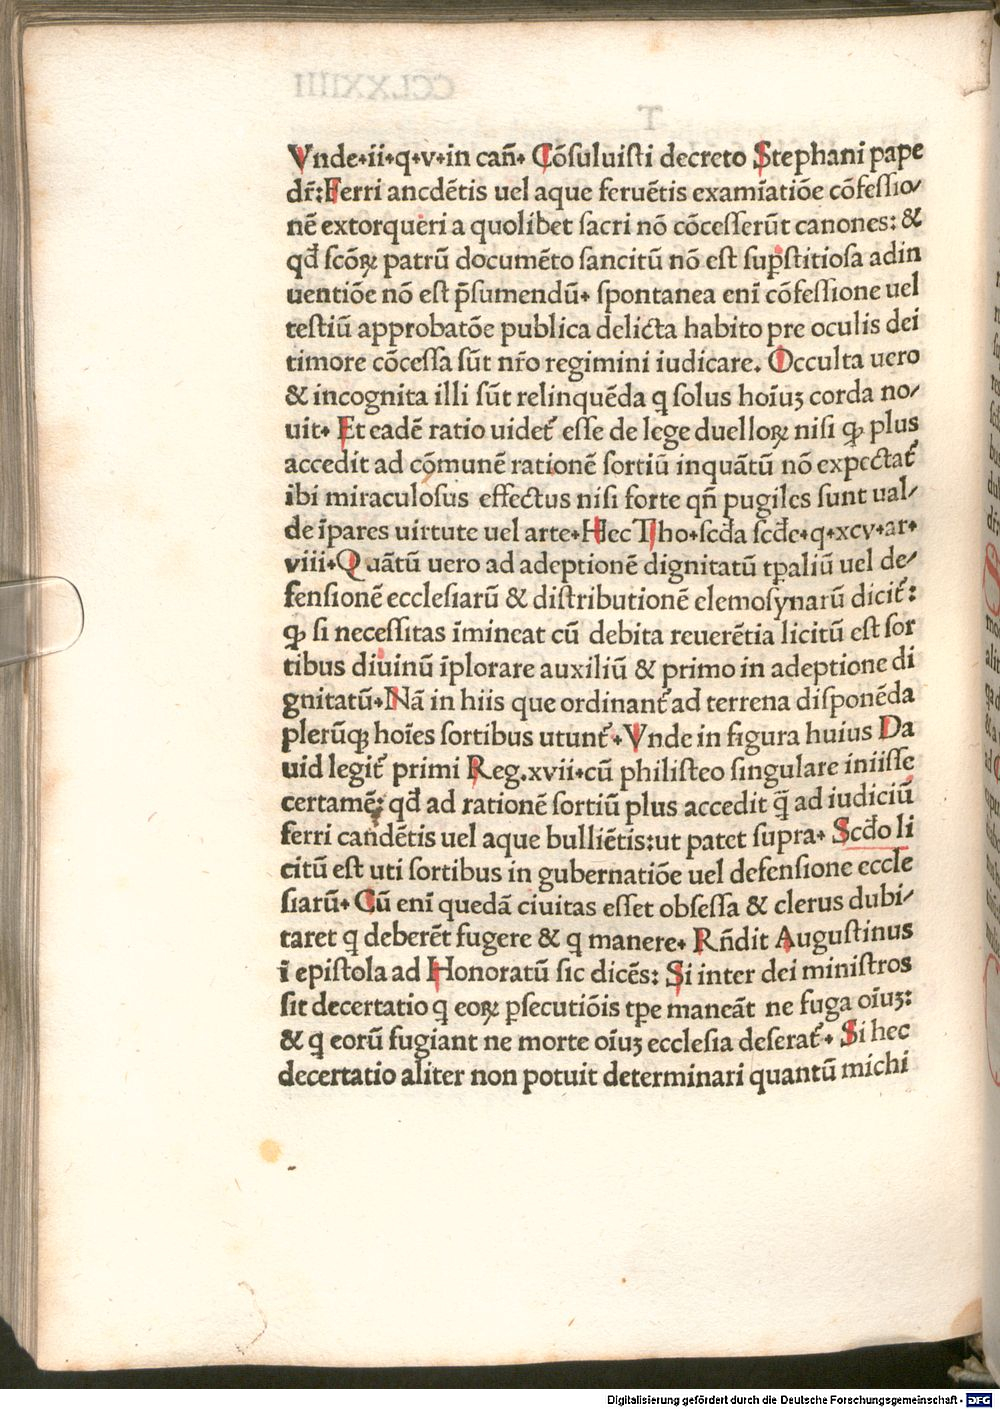 Vnde·ii·q·v·in cañ· Cõsuluisti decreto Stephani pape
dr̃:Ferri ancdẽtis uel aque feruẽtis examĩatiõe cõfessio/
nẽ extorqueri a quolibet sacri nõ cõcesserũt canones: &
qđ scõꝝ patrũ documẽto sancitũ nõ est suꝑstitiosa adin
uentiõe nõ est p̃sumendũ· spontanea enĩ cõfessione uel
testiũ approbatõe publica delicta habito pre oculis dei
timore cõcessa sũt nr̃o regimini iudicare. Occulta uero
& incognita illi sũt relinquẽda q solus hoĩuꝫ corda no/
uit· Et eadẽ ratio uidet̃ esse de lege duelloꝝ nisi ꝙ plus
accedit ad cõmunẽ rationẽ sortiũ inquãtũ nõ expectat̃
ibi miraculosus effectus nisi forte qñ pugiles sunt ual/
de ĩpares uirtute uel arte·Hec Tho·scđa scđe·q·xcv·ar·
viii·Quãtũ uero ad adeptionẽ dignitatũ tp̃aliũ uel de/
fensionẽ ecclesiarũ & distributionẽ elemosynarũ dicit̃:
ꝙ si necessitas ĩmineat cũ debita reuerẽtia licitũ est sor
tibus diuinũ ĩplorare auxiliũ & primo in adeptione di
gnitatũ·Nã in hiis que ordinant̃ ad terrena disponẽda
plerũqꝫ hoĩes sortibus utunt̃·Vnde in figura huius Da
uid legit̃ primi Reg.xvii·cũ philisteo singulare iniisse
certamẽ: qđ ad rationẽ sortiũ plus accedit q̃ ad iudiciũ
ferri candẽtis uel aque bulliẽtis:ut patet supra· Scđo li
citũ est uti sortibus in gubernatiõe uel defensione eccle
siarũ· Cũ enĩ quedã ciuitas esset obsessa & clerus dubi/
taret q deberẽt fugere & q manere· Rñdit Augustinus
ĩ epistola ad Honoratũ sic dicẽs: Si inter dei ministros
sit decertatio q eoꝝ ꝑsecutiõis tp̃e maneãt ne fuga oĩuꝫ:
& q eorũ fugiant ne morte oĩuꝫ ecclesia deserat̃· Si hec
decertatio aliter non potuit determinari quantũ michi
Digitalisierung gefördert durch die Deutsche Forschungsgemeinschaft - DFG